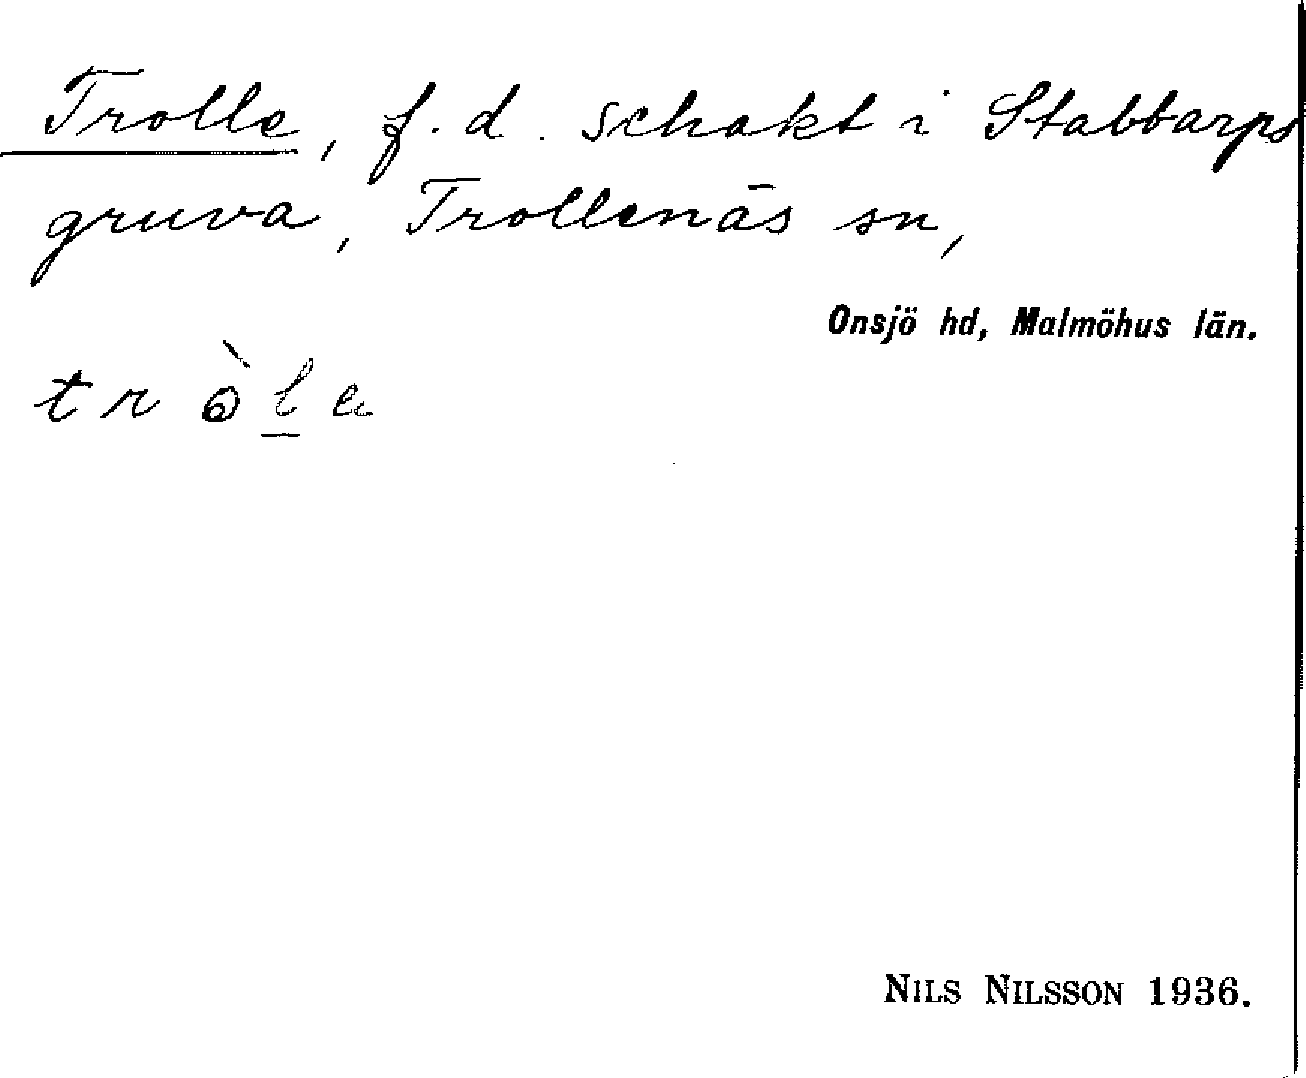 Trolle, f. d. schakt i Stabbarps
gruva, Trollenäs sn,
Onsjö hd, Malmöhus län.
tròle
NILS NILSSON 1936.